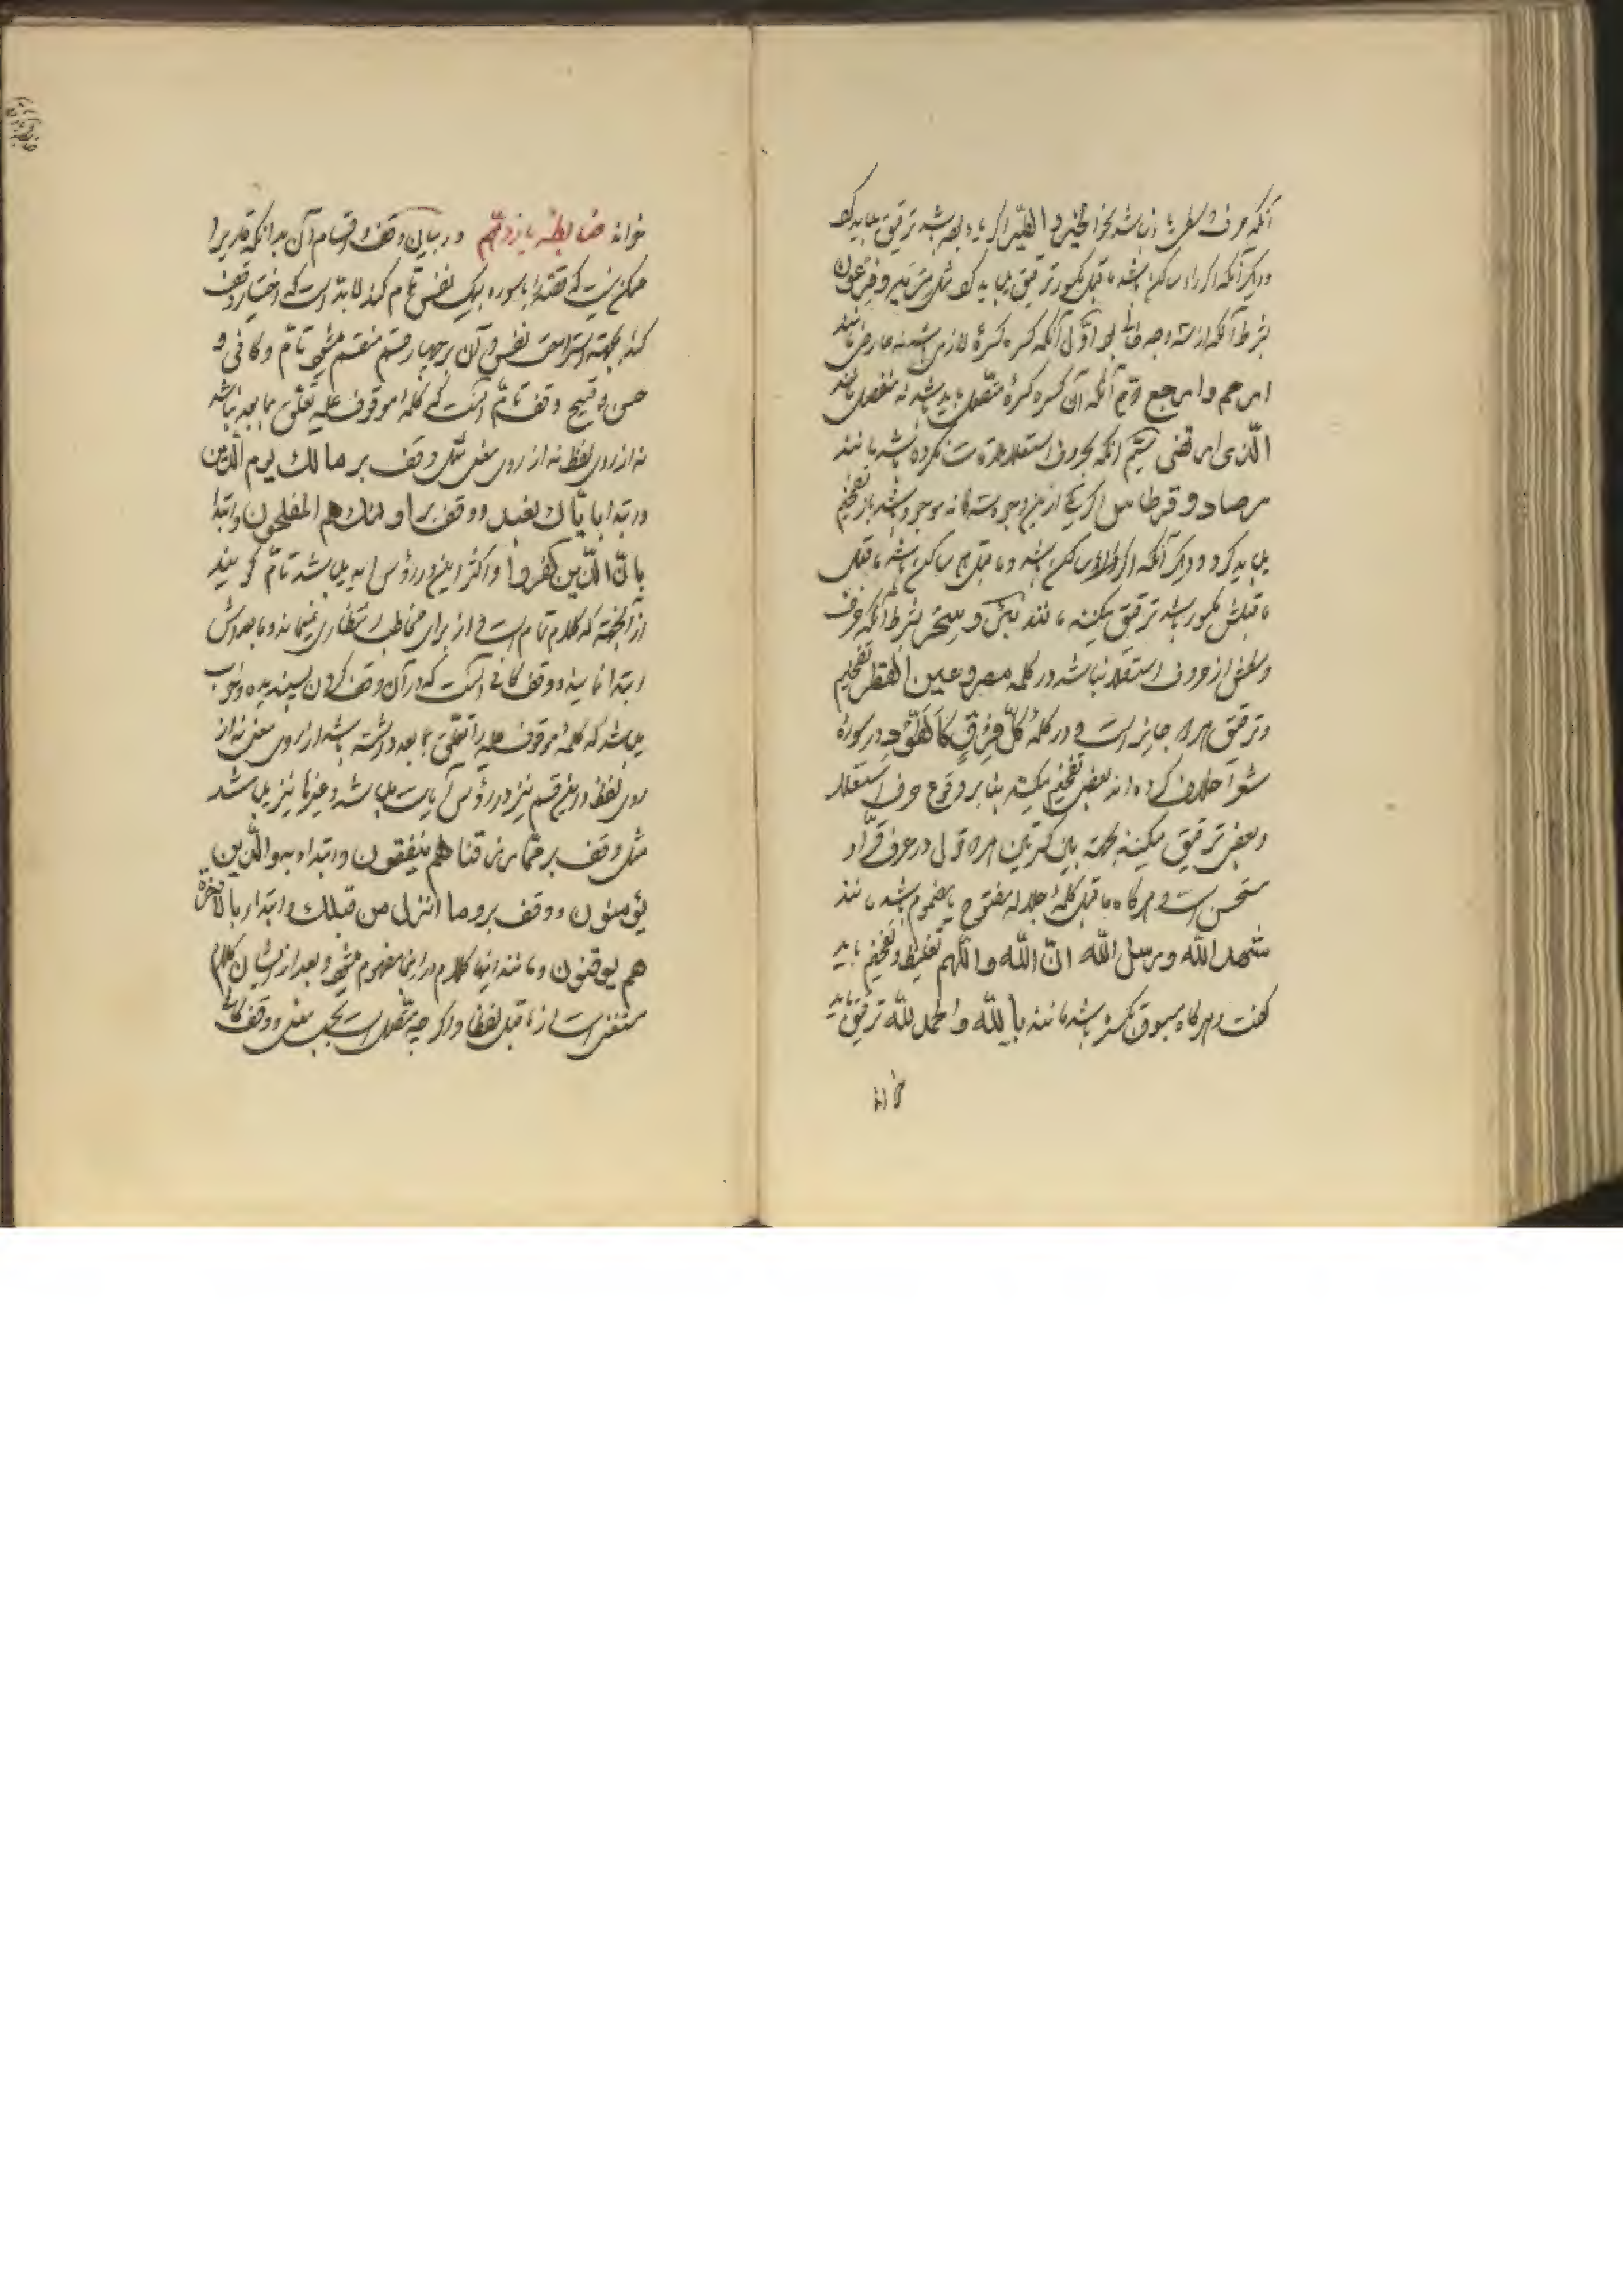 آنکه حرف وسطی یا زباشد نحو الخیر و الطیر اگر یاء باشد ترقیق میباید کرد
و دیگر آنکه اگر راء ساکن باشد ماقبل مکسور ترقیق میباید کرد مثل مریه و فرعون
بشرط آنکه از سه وجه خالی بود اول آنکه کسره کسرهٔ لازمی باشد نه عارضی مانند
ارحم و ارجع دویم آنکه آن کسره کسرهٔ متصل باید باشد نه منفصل مانند
الّذی ارتضی سیّم آنکه بحروف استعلا ملاقات نکرده باشد مانند
مرصاد و قرطاس اگر یکی از این وجوه سه‌گانه موجود باشد باز تفخیم
میباید کرد و دیگر آنکه اگر راء ساکن باشد و ماقبل هم ساکن باشد ماقبل
ماقبلش مکسور باشد ترقیق میکنند مانند بکر و سحر بشرط آنکه حرف
وسطش از حروف استعلا نباشد در کلمه مصر و عین القطر تفخیم
و ترقیق هر دو جایز است و در کلمهٔ کلّ فرق کالطّود در سورهٔ
شعرا خلاف کرده‌اند بعضی تفخیم میکنند بنا بر وقوع حرف استعلا
و بعضی ترقیق میکنند بجهة بین کسرتین هر دو قول در عرف قرّاء
مستحسن است و هرگاه ماقبل کلمهٔ جلاله مفتوح یا مضموم باشد مانند
شهد الله و رسل الله انّ الله و اللّهم تغلیظ و تفخیم باید
گفت و هرگاه مسبوق بکسره باشد مانند بالله و الحمد لله ترقیق باید
خواند
خواند ضابطه یازدهم در بیان وقف و اقسام آن بدانکه قاری را
ممکن نیست که قصّه یا سوره بیک نفس تمام کند لابدّ است که اختیار وقف
کند بجهة استراحت نفس و آن بر چهار قسم منقسم میشود تامّ و کافی و
حسن و قبیح وقف تامّ آنست که کلمهٔ موقوف علیه تعلّق بما بعد نباشد
نه از روی لفظ نه از روی معنی مثل وقف بر مالك یوم الدّین
و ابتدا بایّاك نعبد و وقف بر اولئك هم المفلحون و ابتدا
بانّ الّذین کفروا و اکثر این در رؤس آیه میباشد تامّ گویند
از آنجهة که کلام تمام است و از برای مخاطب انتظاری نمیماند و مابعدش
ابتدا نمایند و وقف کافی آنست که در آن وقف کردن پسندیده و خوب
میباشد که کلمهٔ موقوف علیه را تعلّق بما بعد داشته باشد از روی معنی نه از
روی لفظ و این قسم نیز در رؤس آیات میباشد و غیرها نیز میباشد
مثل وقف بر ممّا رزقناهم ینفقون و ابتداء به والّذین
یؤمنون و وقف بر وما انزل من قبلك و ابتداء بالآخرة
هم یوقنون و مانند اینها کلام در اینجا مفهوم میشود و بعد از ایشان کلام
مستغنی است از ماقبل لفظا و اگر چه متّصل است بحسب معنی و وقف کافی